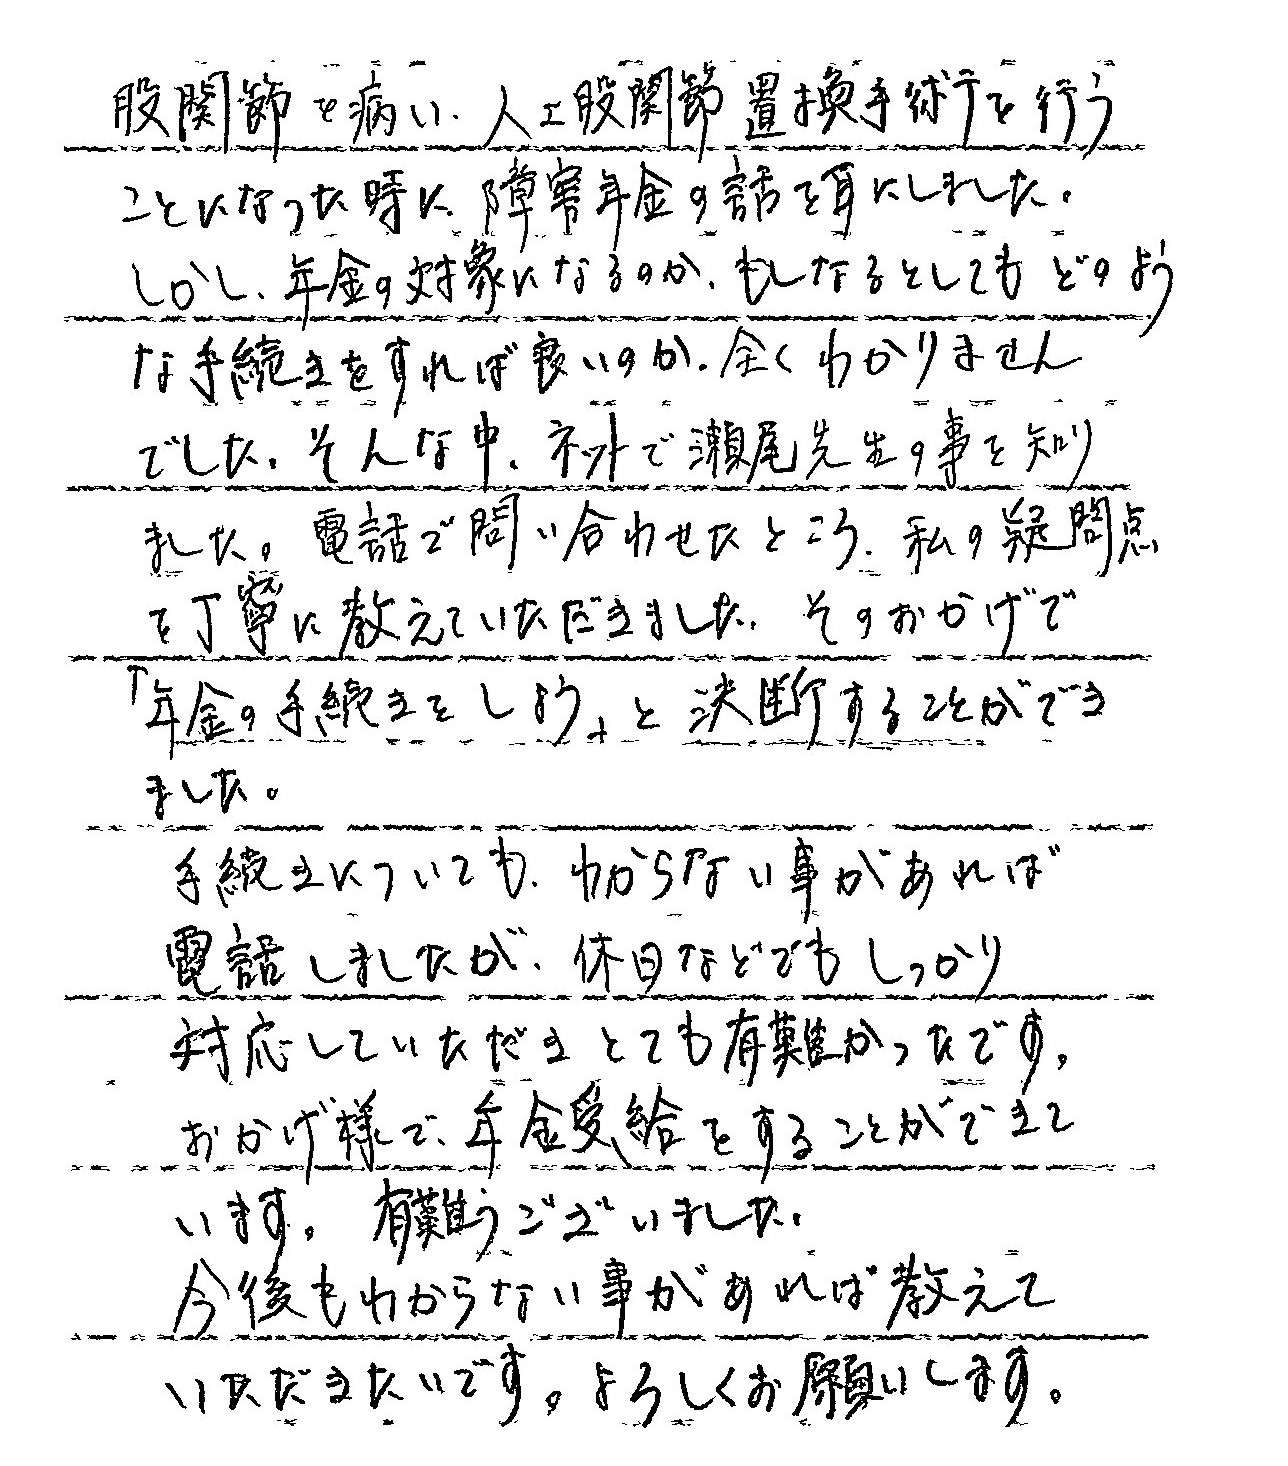 股関節を病い、人工股関節置換手術を行う
ことになった時に、障害年金の話を耳にしました。
しかし、年金の対象になるのか、もしなるとしてもどのよう
な手続きをすれば良いのか、全くわかりません
でした。そんな中、ネットで瀬尾先生の事を知り
ました。電話で問い合わせたところ、私の疑問点
を丁寧に教えていただきました。そのおかげで
「年金の手続きをしよう」と決断することができ
ました。
手続きについても、わからない事があれば
電話しましたが、休日などでもしっかり
対応していただきとても有難かったです。
おかげ様で、年金受給をすることができて
います。有難うございました。
今後もわからない事があれば教えて
いただきたいです。よろしくお願いします。